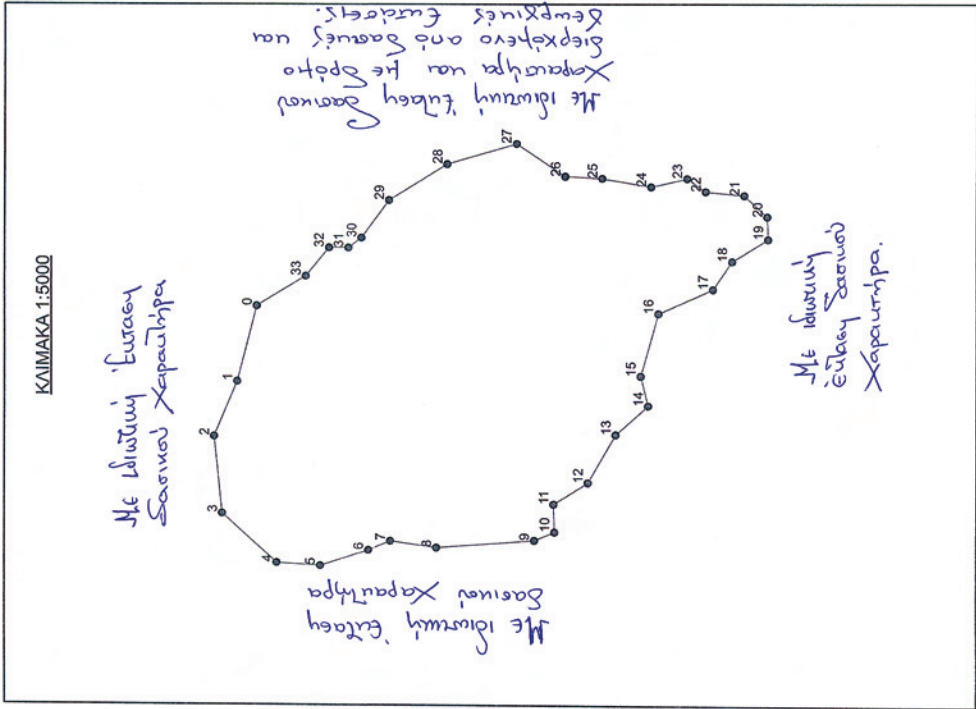 ΚΛΙΜΑΚΑ 1:5000
Με ιδιωτική Έκταση
Δασικού Χαρακτήρα
Με ιδιωτική Έκταση Δασικού
Χαρακτήρα και με δρόμο
διερχόμενο από δασικές και
γεωργικές Εκτάσεις.
Με ιδιωτική Έκταση
Δασικού Χαρακτήρα
Με ιδιωτική
έκταση Δασικού
Χαρακτήρα.
0
1
2
3
4
5
6
7
8
9
10
11
12
13
14
15
16
17
18
19
20
21
22
23
24
25
26
27
28
29
30
31
32
33